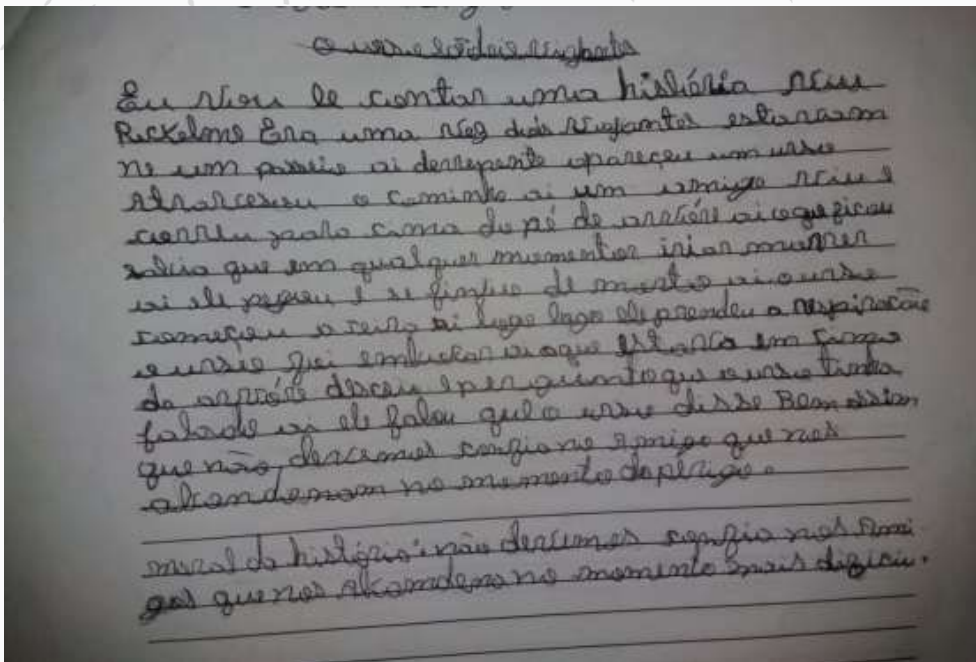 O urso e os dois viajantes
Eu vou le contar uma história viu
Rickelme Era uma vez dois viajantes estavam
no um passeio ai derrepente apareceu um urso
atravessou o caminho ai um amigo viu e
correu para cima do pé de arvore ai o que ficou
sabia que em qualquer momentor iriar murrer
ai ele pegou e se fingiu de morto ai o urso
começou a ceira ai logo logo ele prendeu a respiração
o urso foi embuera ai o que estava em cima
da arvore desceu e perguntoque o urso tinha
falado ai ele falou que o urso disse Bem assim
que não, devemos confia no amigo que nos
abandonam no momento do périgo.
moral da história: não devemos confia nos Ami
gos que nos abandona no momento mais dificiu.